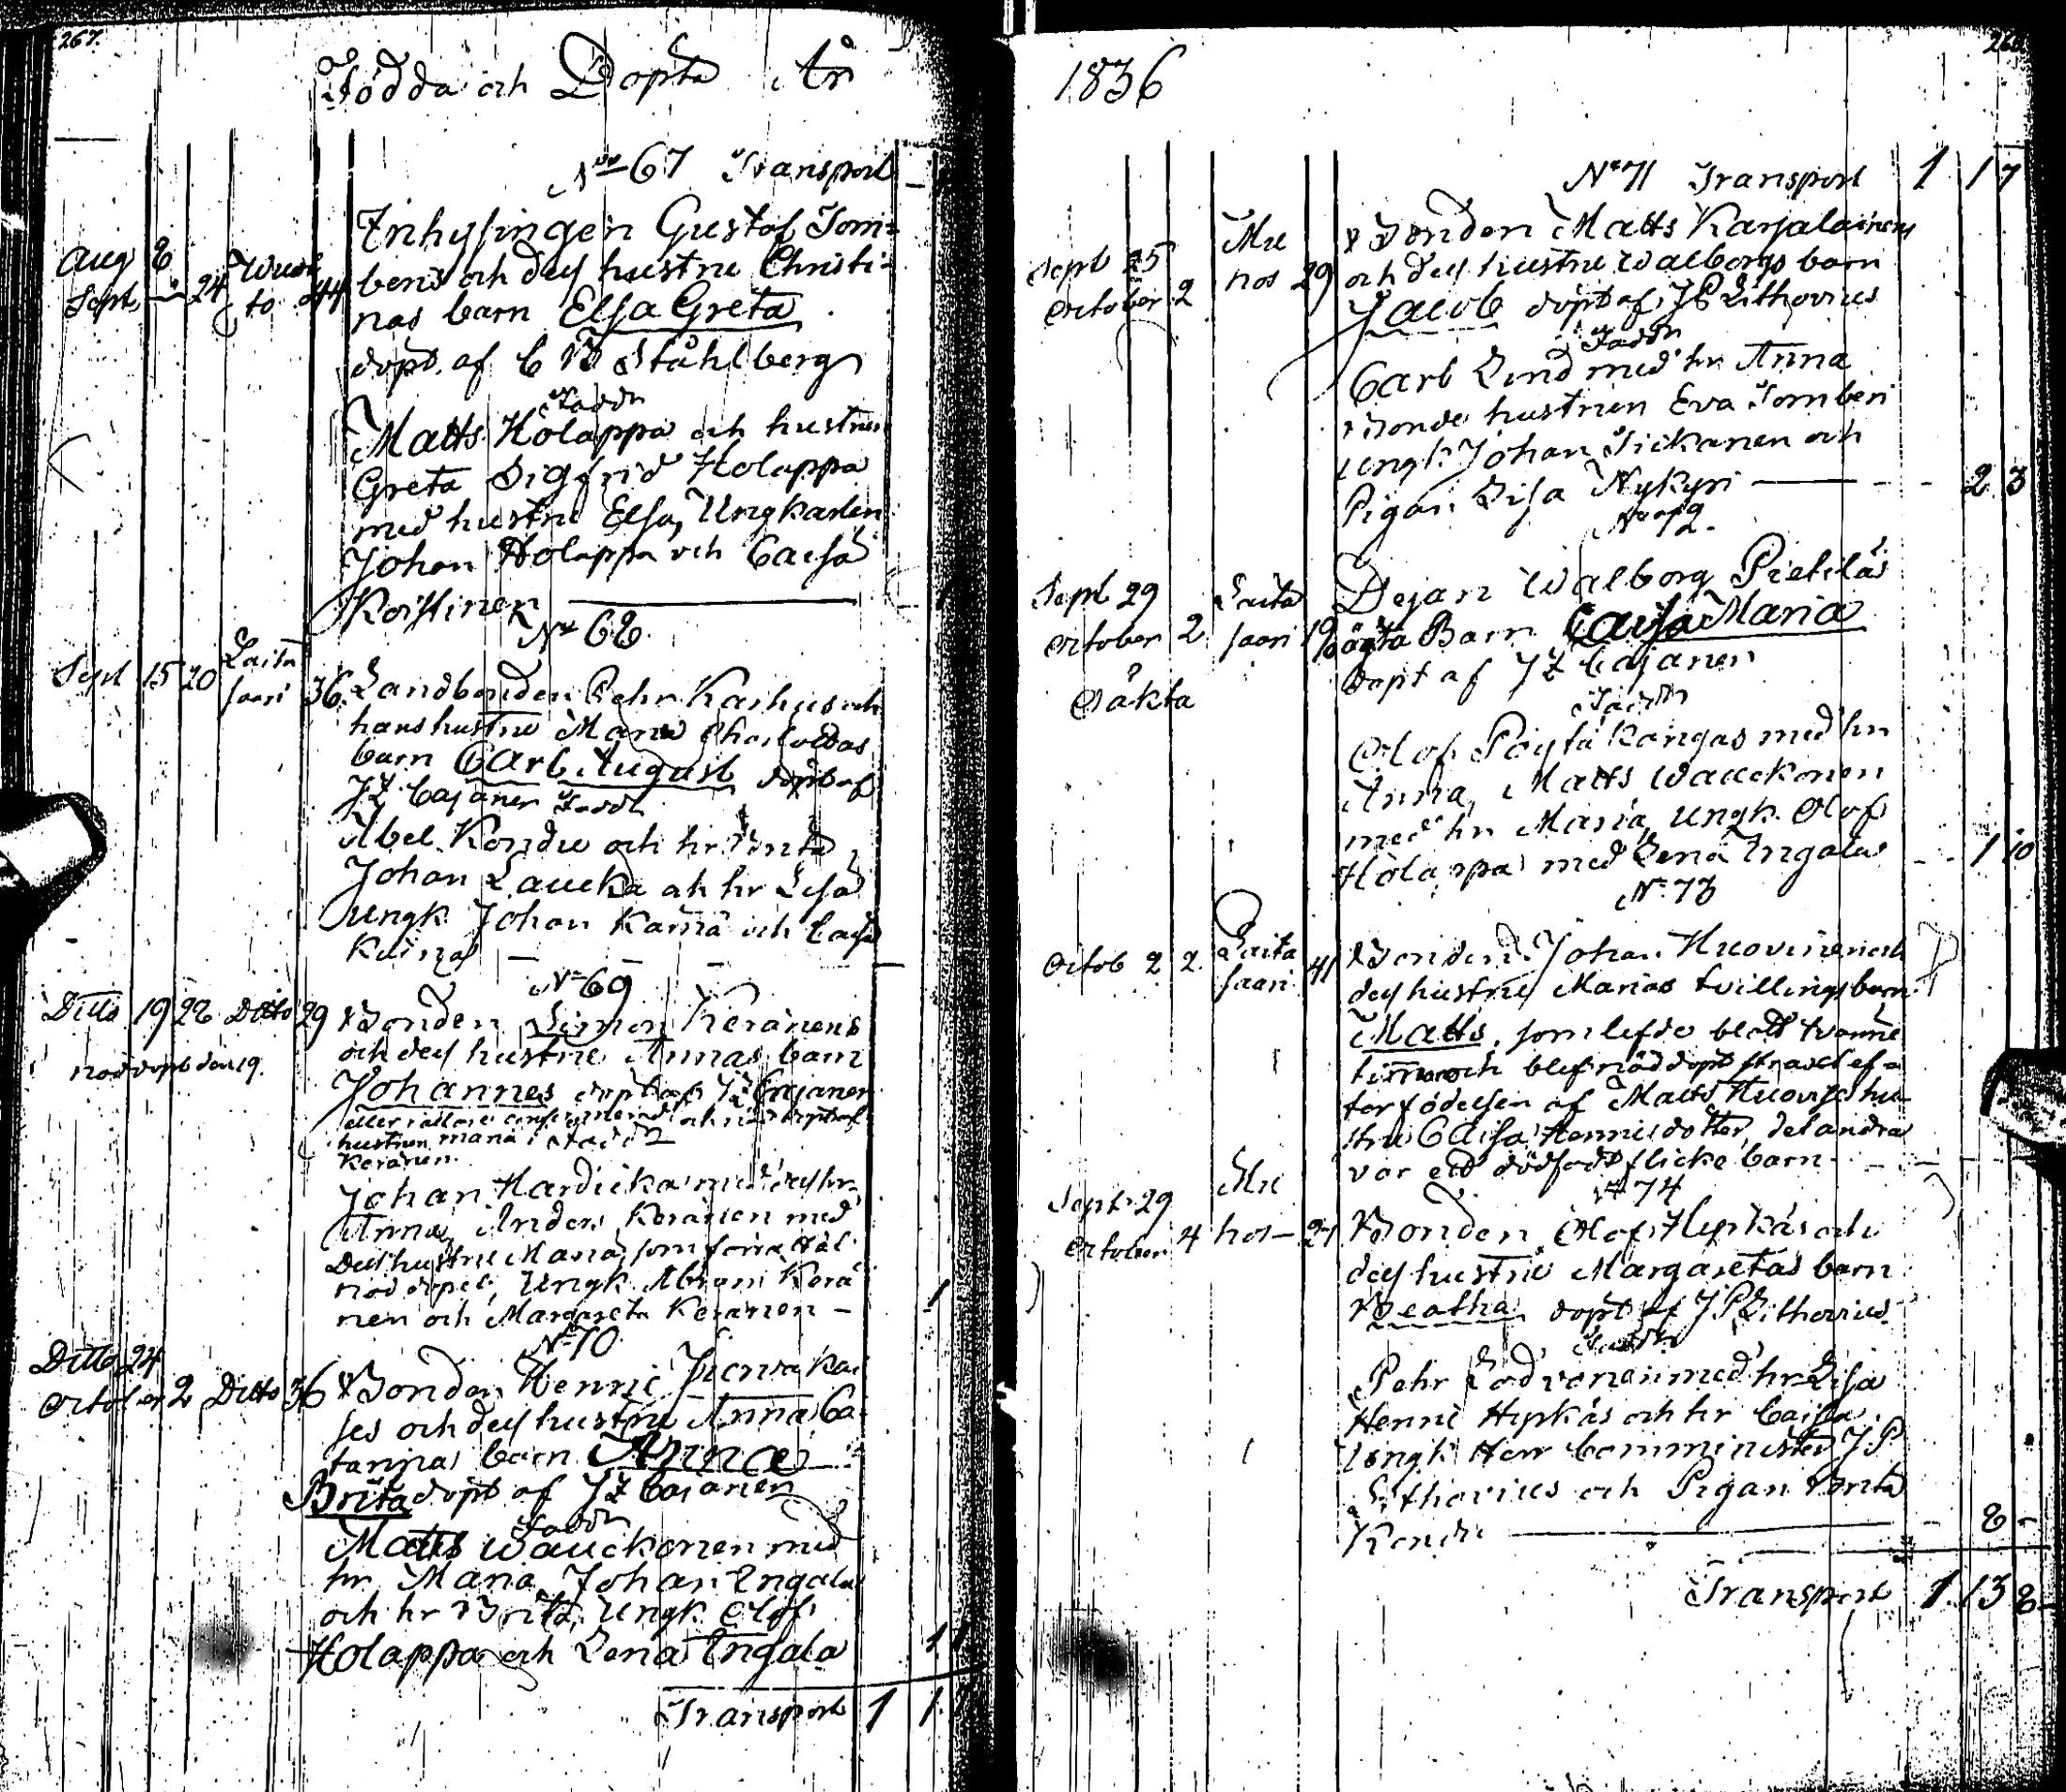 267.
Födda och Dopta År
No 67 Transport
Aug 8
Sept 24
to 44
Inhysingen Gustof Torn=
beris och des hustru Christi=
nas barn Elsa Greta
döpt af C W Ståhlberg
Faddr
Matts Holappa och hustrun
Greta Sigfrid Holappa
med hustru Elsa, Ungkarlen
Johan Holappa och Caisa
Koistinen
No 68
Sept 15 20 Laita
saari 36
Landbonden Pehr Karhus och
hans hustru Maria
barn Carl August döpt af
JZ Cajaner Faddr
Abel Kondu och hr Brita
Johan Laucka och hr Lisa
Ungk Johan Karna och Caisa
No 69
Ditto 19 22 Ditto 29
nöddöpt den 19.
Bonden Simon Keränens
och des hustru Annas barn
Johannes döpt af JZ Cajaner
hustrun Maria Faddr
Keränen.
Johan Hardicka med des hr
Anna, Anders Keränen med
Des hustru Maria, som förrättat
nöddopet, Ungk. Abram Kerä
nen och Margareta Keränen — 1
No 70
Ditto 24
October 2 Ditto 36
Bonden Henric
ses och des hustru Anna Ca
tarinas barn Anna
Brita döpt af JZ Cajanen
Faddr
Matts Wauckonen med
hr Maria, Johan Engalas
och hr Brita, Ungk. Olof
Holappa och Lena Engala
Transport 1 1 7
1836
No 71 Transport 1 1 7
Sept 25
October 2
Mu
hos 29
Bonden Matts Karjalainens
och des hustru Walborgs barn
Jacob döpt af JP Lithovius
Faddr
Carl Lind med hr Anna
Bonde hustrun Eva Tornberi
Ungk. Johan Tickanen och
Pigan Lisa Nykyri — 2 3
No 72.
Sept 29
October 2
Laita
saari 19
Oäkta
Dejan Walborg Pietiläs
oägta Barn Caisa Maria
döpt af JZ Cajaner
Faddr
Olof Pöytäkangas med hr
Anna, Matts Wauckonen
med hr Maria, Ungk. Olof
Holappa med Lena Engala 1 10
No 73
Octob 2 2 Laita
saari 41
Bonden Johan Huovinen och
des hustru Marias tvillingsbarn
Matts, som lefde blott tvänne
timar och blef nöddöpt straxt ef=
ter födelsen af Matts Huovises hu=
stru Caisa Henricsdotter, det andra
var ett dödfödt flickebarn.
No 74
Sept 29
October 4
Mu
hos — 27
Bonden Olof Hyrkäs och
des hustru Margaretas barn
Beatha döpt af JP Lithovius
Faddr
Pehr Lodvonen med hr Lisa
Henric Hyrkäs och hr Caisa
Ungk Herr Comminister J P
Lithovius och Pigan Brita
Kondu — 8 -
Transport 1. 13 8